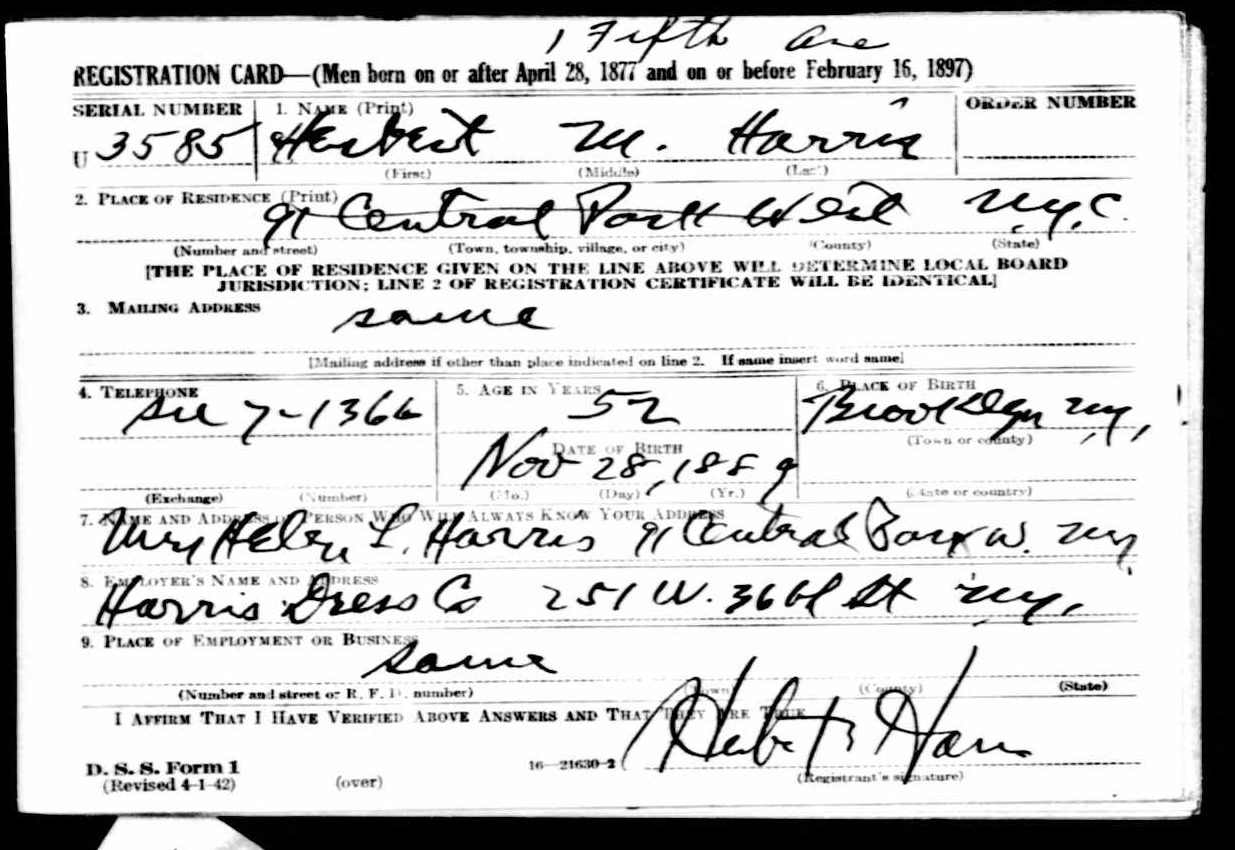 1 Fifth Ave
REGISTRATION CARD—(Men born on or after April 28, 1877 and on or before February 16, 1897)
SERIAL NUMBER 1. NAME (Print) ORDER NUMBER
U 3585 Herbert M. Harris
(First) (Middle) (Last)
2. PLACE OF RESIDENCE (Print)
91 Central Park West N.Y.C.
(Number and street) (Town, township, village, or city) (County) (State)
[THE PLACE OF RESIDENCE GIVEN ON THE LINE ABOVE WILL DETERMINE LOCAL BOARD
JURISDICTION; LINE 2 OF REGISTRATION CERTIFICATE WILL BE IDENTICAL]
3. MAILING ADDRESS
same
[Mailing address if other than place indicated on line 2. If same insert word same]
4. TELEPHONE 5. AGE IN YEARS 6. PLACE OF BIRTH
7-1366 52 Brooklyn N.Y.
(Town or county)
DATE OF BIRTH
Nov 28, 1889
(Exchange) (Number) (Mo.) (Day) (Yr.) (State or country)
7. NAME AND ADDRESS OF PERSON WHO WILL ALWAYS KNOW YOUR ADDRESS
Mrs Helen L. Harris 91 Central Park W. N.Y.
8. EMPLOYER'S NAME AND ADDRESS
Harris Dress Co 251 W. 36th St N.Y.
9. PLACE OF EMPLOYMENT OR BUSINESS
same
(Number and street or R. F. D. number) (Town) (County) (State)
I AFFIRM THAT I HAVE VERIFIED ABOVE ANSWERS AND THAT THEY ARE TRUE.
Herbert Harris
D. S. S. Form 1 16—21630-2
(Revised 4-1-42) (over) (Registrant's signature)